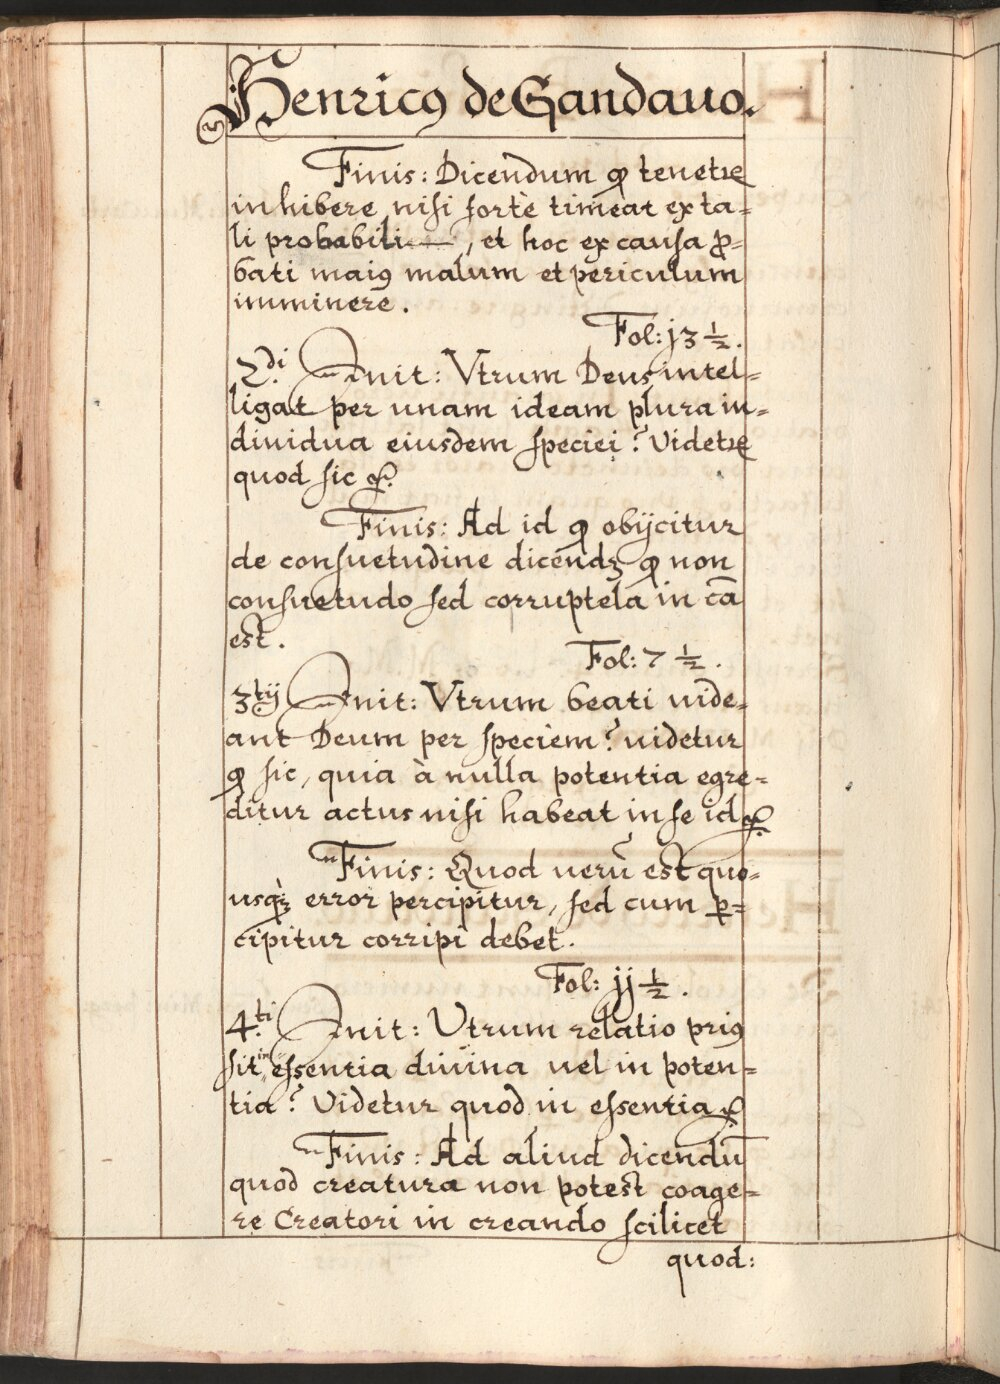 Henricꝰ de Gandauo.
Finis: Dicendum ꝙ tenetᷣ
inhibere nisi fortè timeat ex ta=
li probabili —, et hoc ex causa ꝓ=
bati maiꝰ malum et periculum
imminere.
Fol: j3 ½.
2.di Init: Vtrum Deus intel=
ligat per unam ideam plura in=
diuidua eiusdem speciei? Videtᷣ
quod sic &.
Finis: Ad id ꝙ obijcitur
de consuetudine dicendꝫ ꝙ non
consuetudo sed corruptela in cā
est.
Fol: 7 ½.
3.tij Init: Vtrum beati uide=
ant Deum per speciem? uidetur
ꝙ sic, quia à nulla potentia egre=
ditur actus nisi habeat in se id &.
Finis: Quod uerū est quo=
usqꝫ error percipitur, sed cum ꝑ=
cipitur corripi debet.
Fol: jj ½.
4.ti Init: Utrum relatio priꝰ
sit in essentia diuina uel in poten=
tia? Videtur quod in essentia &
Finis: Ad aliud dicendū
quod creatura non potest coage=
re Creatori in creando scilicet
quod: